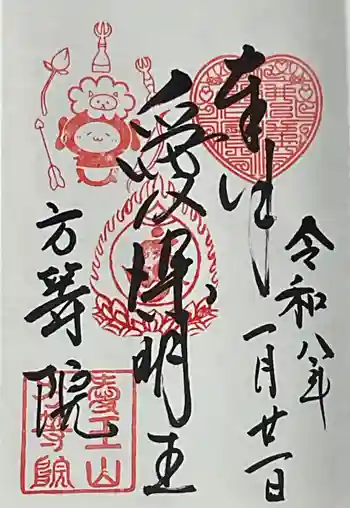 奉拝
令和八年
一月廿一日
愛染明王
方等院
愛王山
方等院